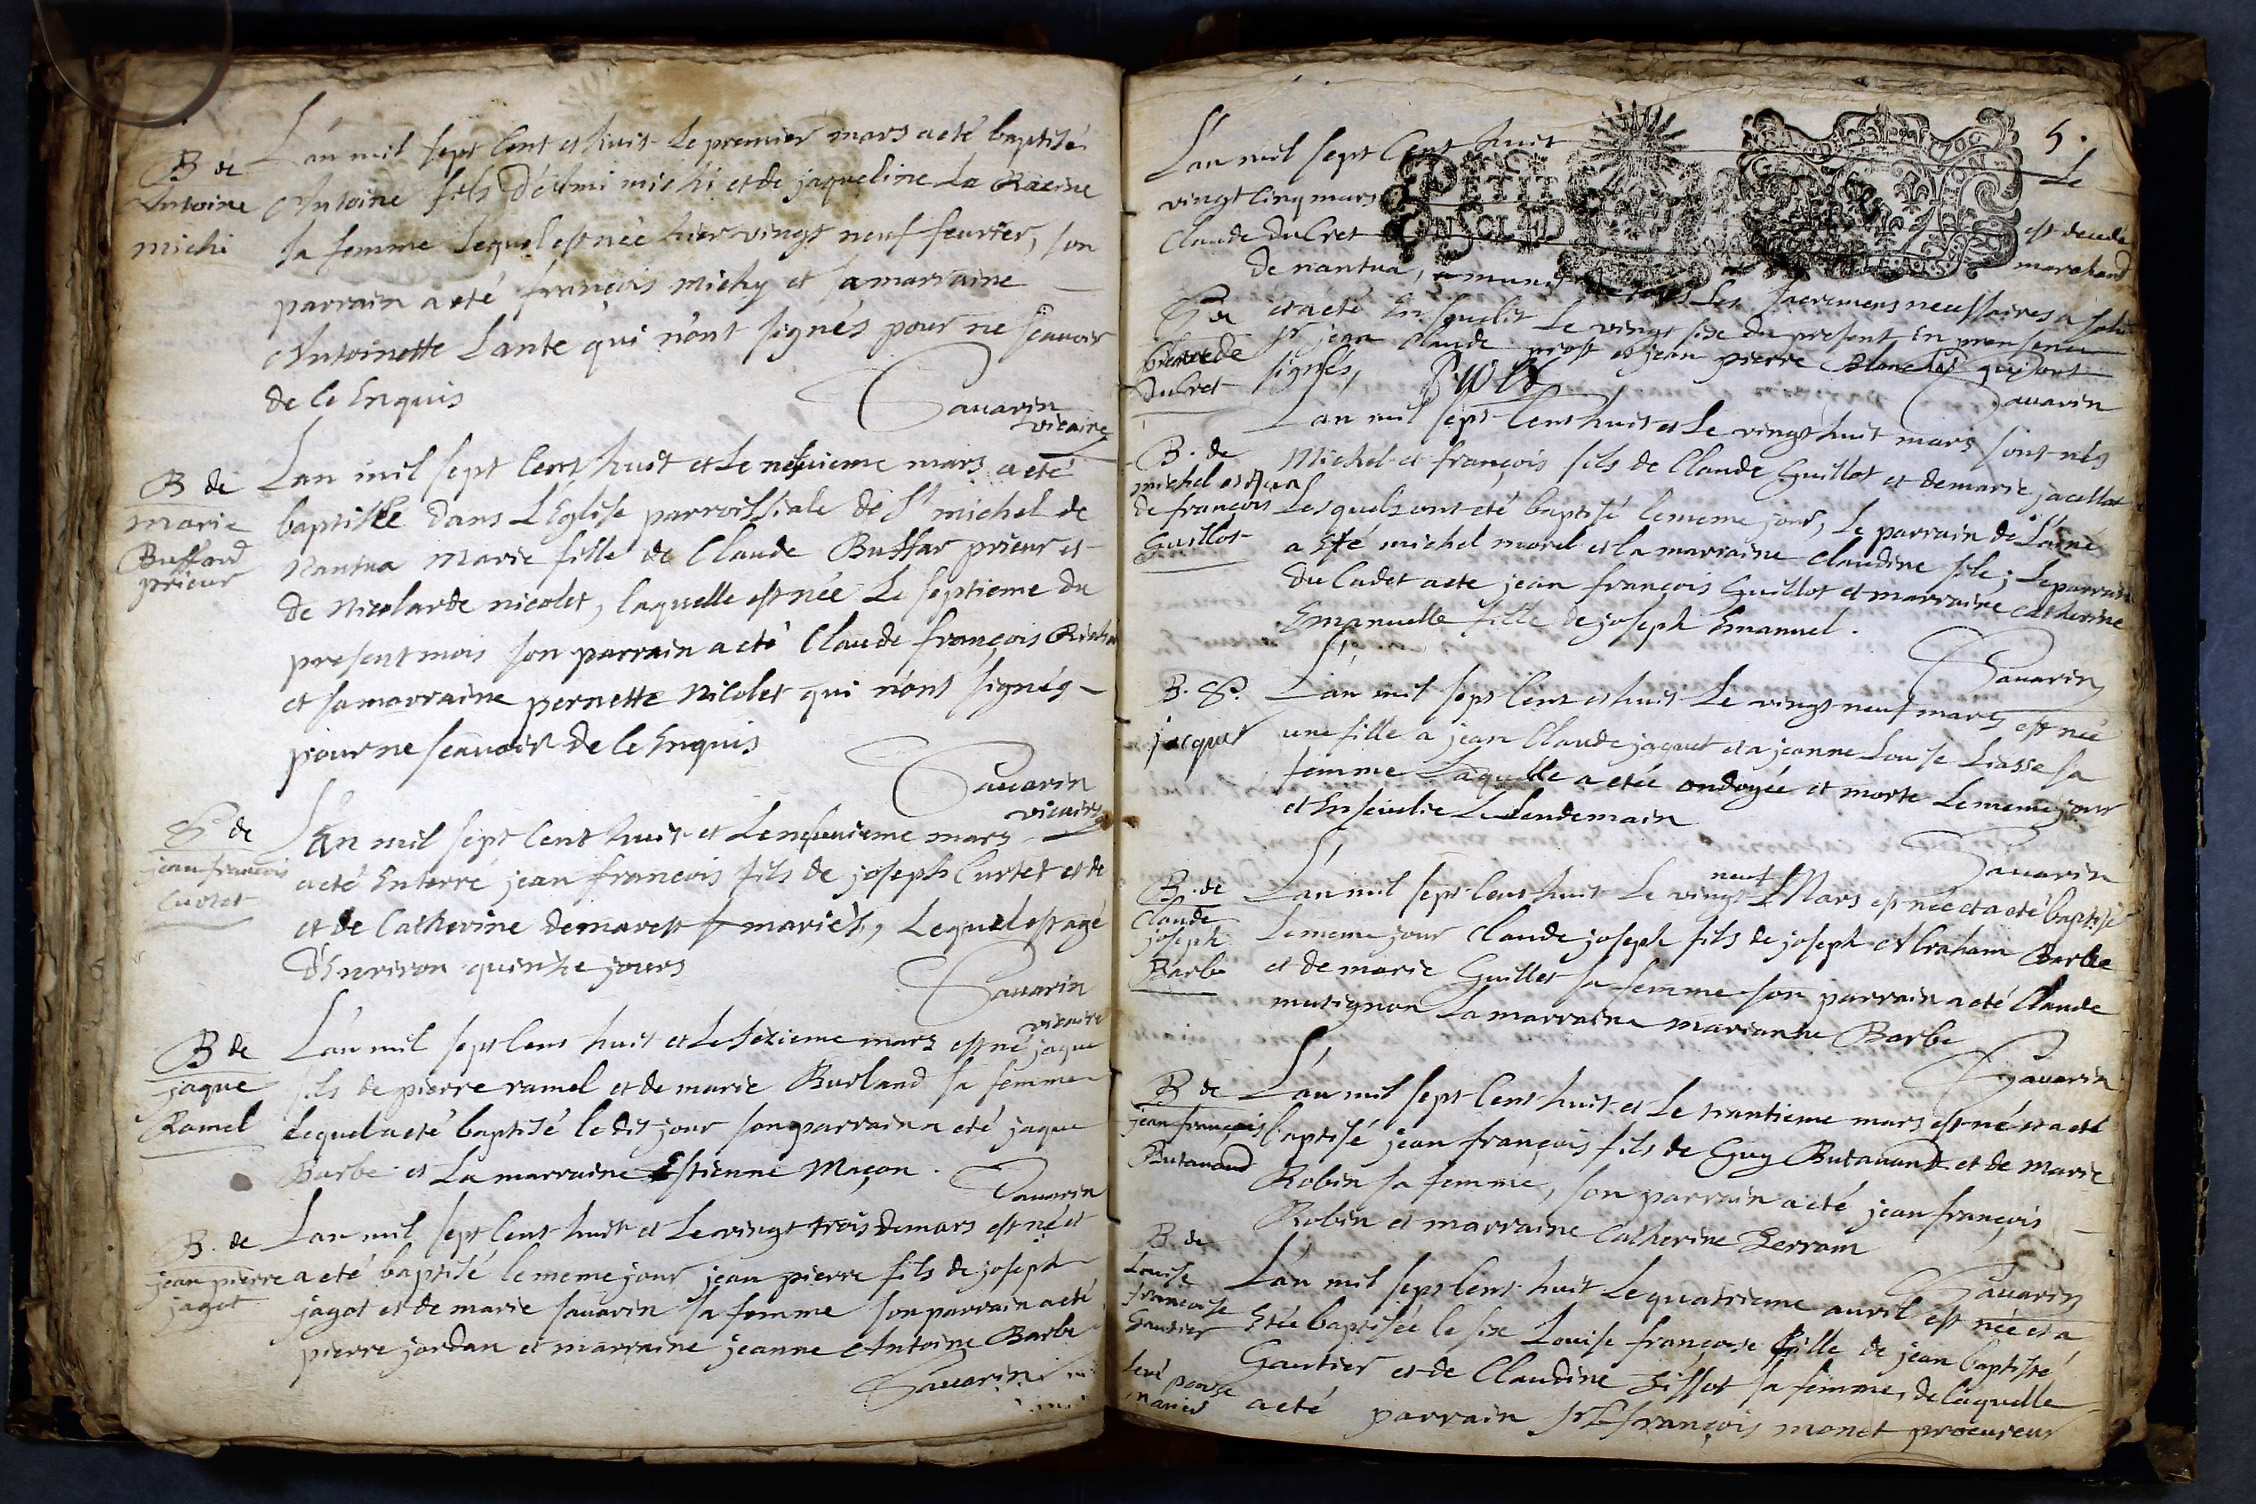 B de
Antoine
michi
L'an mil sept Cent et huit Le premier mars a eté baptisé
Antoine fils d'Eimi michi et de jaqueline La Racine
sa femme Lequel est née hier vingt neuf feurier, son
parrain a eté françois Michy et sa marraine
Antoinette Lante qui n'ont signés pour ne sçauoir
de ce Enquis
Sauarin
vicaire
B de
marie
Buffard
prieur
L'an mil sept Cent huit et Le neſuieme mars a eté
baptisée dans L'Eglise parroissiale de St michel de
Nantua Marie fille de Claude Buffar prieur et
de Nicolarde nicolet, laquelle est née Le septieme du
present mois son parrain a eté Claude françois
et sa marraine pernette Nicolet qui n'ont signés
pour ne sçauoir de ce Enquis
Sauarin
vicaire
S de
jean françois
Curtet
L'an mil sept Cent huit et Le neſuuieme mars
a eté Enterré jean francois fils de joseph Curtet et de
et de Catherine demarest mariés, Lequel est agé
d'Enuiron quinze jours
Sauarin
vicaire
B de
jaque
Ramel
L'an mil sept Cens huit et Le sezieme mars est né jaque
fils de pierre ramel et de marie Burland sa femme
Lequel a eté baptisé le dit jour son parrain a eté jaque
Barbe et La marraine Estienne Maçon.
Sauarin
B. de
jean pierre
jagot
L'an mil sept Cent huit et Le vingt trois de mars est né et
a eté baptisé le meme jour jean pierre fils de joseph
jagot et de marie sauarin sa femme son parrain a eté
pierre jordan et marraine jeanne Antoine Barbe
Sauarin
5.
PETIT
L'an mil sept Cent huit Le
vingt Cinq mars est decedé
Claude DuCret marchand
de nantua, a muni de tous Les sacremens necessaires a salut
S de
Claude
DuCret
et a eté Enseuelit Le vingt six du present En presence
Sr jean Claude prost et jean pierre Blanchet qui ont
signés,
Sauarin
B. de
michel et
de françois
Guillot
L'an mil sept Cent huit et Le vingt huit mars sont nés
Michel et françois fils de Claude Guillot et de marie jacellat
Lesquels ont eté baptisé le meme jour, Le parrain de L'ainé
a Eté michel morel et la marraine Claudine file; Le parrain
du Cadet a ete jean françois Guillot et marraine Catherine
Emanuelle fille de joseph Emanuel.
Sauarin
B. S.
jaquet
L'an mil sept Cent et huit Le vingt neuf mars est née
une fille a jean Claude jaquet et a jeanne Louise Liasse sa
femme Laquelle a etée ondoyée et morte Le meme jour
et Enseuelie Le Lendemain
Sauarin
B. de
Claude
joseph
Barbe
L'an mil sept Cent huit Le vingt neuf Mars est née et a eté baptisé
Le meme jour Claude joseph fils de joseph Abraham Barbe
et de marie Guillet sa femme son parrain a eté Claude
musignon La marraine marianne Barbe
Sauarin
B de
jean françois
Butauand
L'an mil sept Cent huit et Le trantieme mars est né et a eté
baptisé jean françois fils de Guy Butauand et de Marie
Robin sa femme, son parrain a eté jean françois
Robin et marraine Catherine Zerram
Sauarin
B. de
Louise
francoise
Gautier
L'an mil sept Cent huit Le quatrieme auril est née et a
Etée baptisée le six Louise françoise fille de jean baptiste
Gautier et de Claudine Zissot sa femme, de laquelle
a eté parrain Sr françois monet procureur